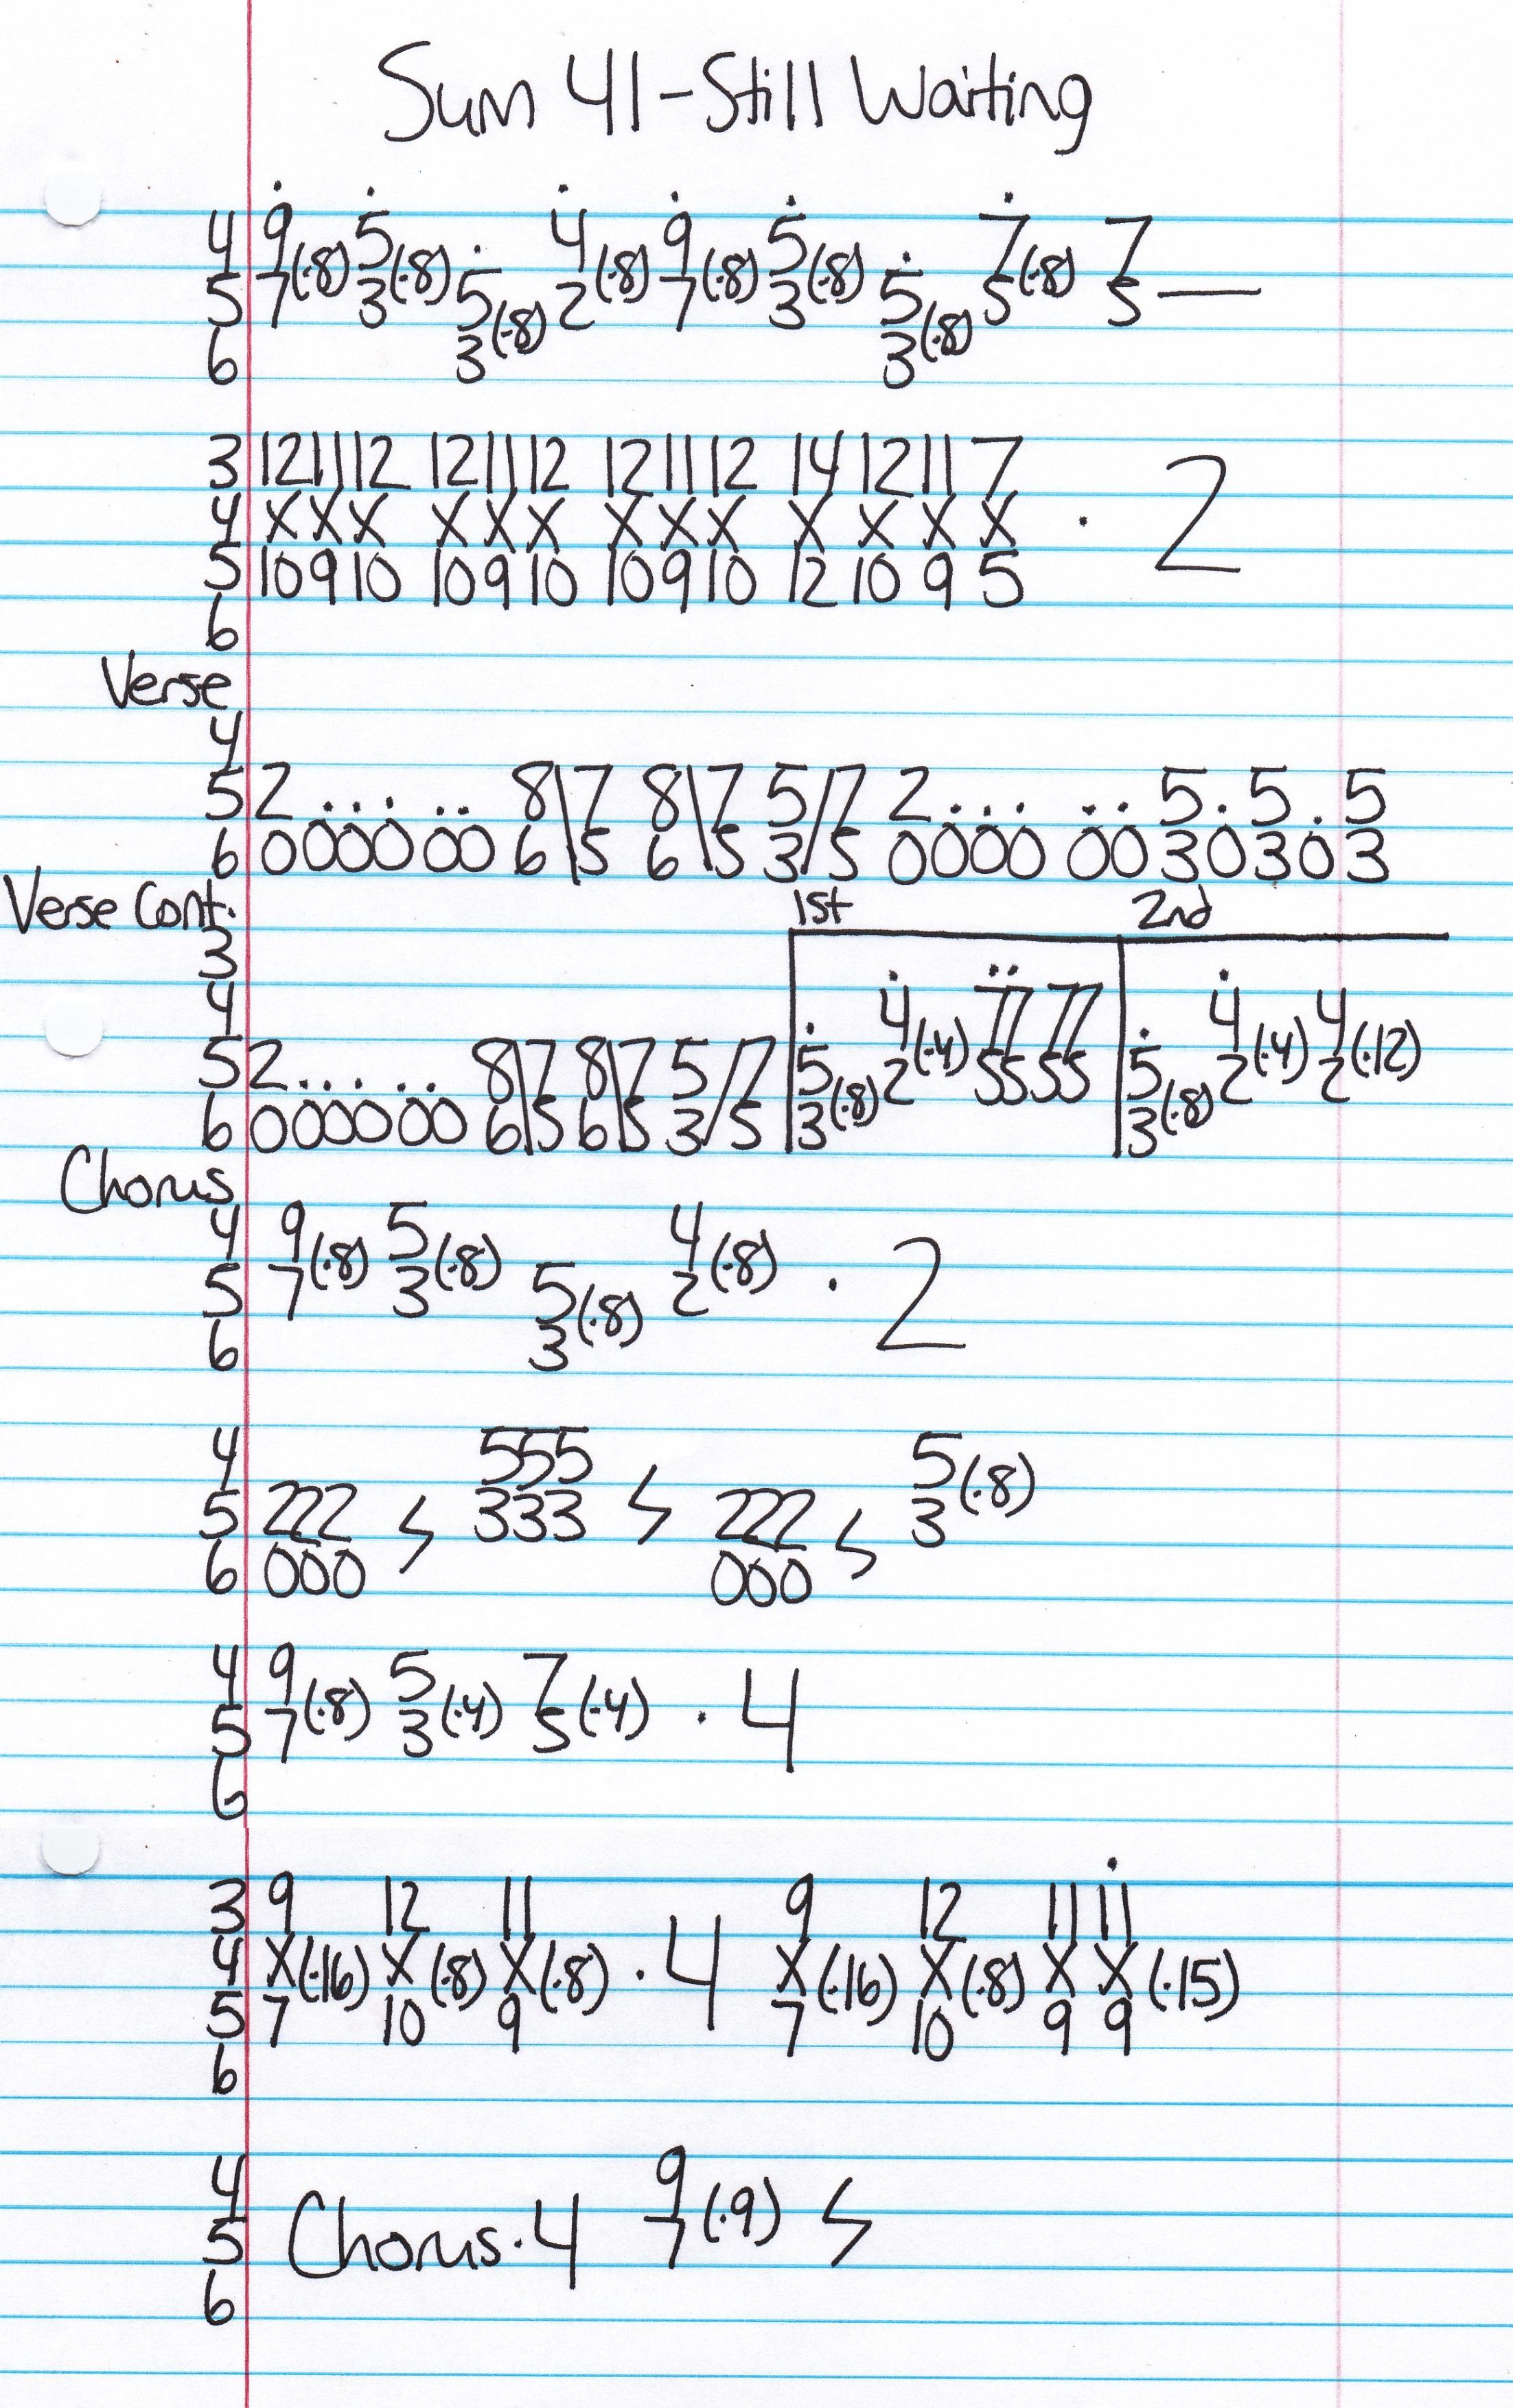 Sum 41-Still Waiting
4 9 5 4 9 5 7 7
5 7(·8) 3(·8) 5 2(·8) 7(·8) 3(·8) 5 5(·8) 5—
6 3(·8) 3(·8)
3 12 11 12 12 11 12 12 11 12 14 12 11 7
4 X X X X X X X X X X X X X · 2
5 10 9 10 10 9 10 10 9 10 12 10 9 5
6
Verse
4
5 2 . . . . . 8\7 8\7 5/7 2 . . . . . 5 . 5 . 5
6 0 0 0 0 0 0 6\5 6\5 3/5 0 0 0 0 0 0 3 0 3 0 3
Verse Cont. 1st 2nd
3
4 4 7 7 7 7 4 4
5 2 . . . . . 8\7 8\7 5/7 5 2(·4) 5 5 5 5 5 2(·4) 2(·12)
6 0 0 0 0 0 0 6\5 6\5 3/5 3(·8) 3(·8)
Chorus
4 9 5 4
5 7(·8) 3(·8) 5 2(·8) · 2
6 3(·8)
4 5 5 5 5
5 2 2 2 3 3 3 2 2 2 3(·8)
6 0 0 0 0 0 0
4 9 5 7
5 7(·8) 3(·4) 5(·4) · 4
6
3 9 12 11 9 12 11 11
4 X(·16) X(·8) X(·8) · 4 X(·16) X(·8) X X(·15)
5 7 10 9 7 10 9 9
6
4 9
5 Chorus·4 7(·9)
6